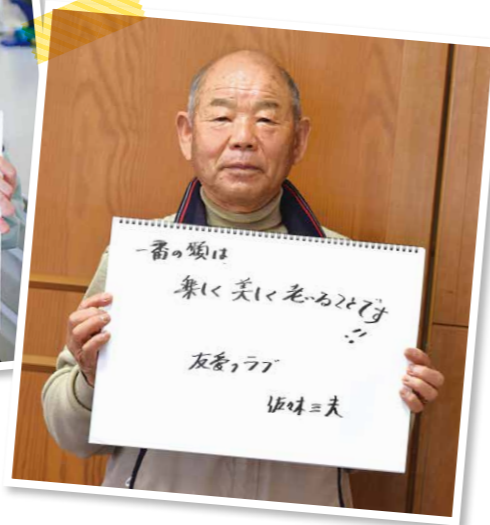 一番の願は
楽しく美しく老いることです
!!
友愛クラブ
佐々木三夫